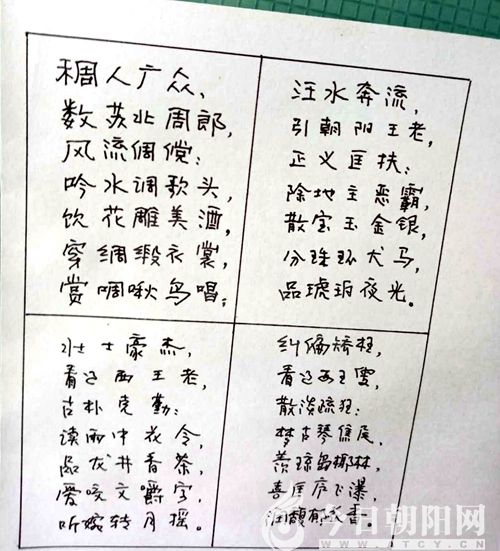 稠人广众,
数苏北周郎,
风流倜傥:
吟水调歌头,
饮花雕美酒,
穿绸缎衣裳,
赏啁啾鸟唱;
汪水奔流,
引朝阳王老,
正义匡扶:
除地主恶霸,
散宝玉金银,
分珠环犬马,
品琥玥夜光。
壮士豪杰,
看辽西王老,
古朴克勤:
读雨中花令,
品龙井香茶,
爱咬文嚼字,
听嫁转月摇。
纠偏矫枉,
看辽西王雯,
散淡疏狂:
梦古琴焦尾,
琼岛椰林,
喜匡庐飞瀑,
今日朝阳网